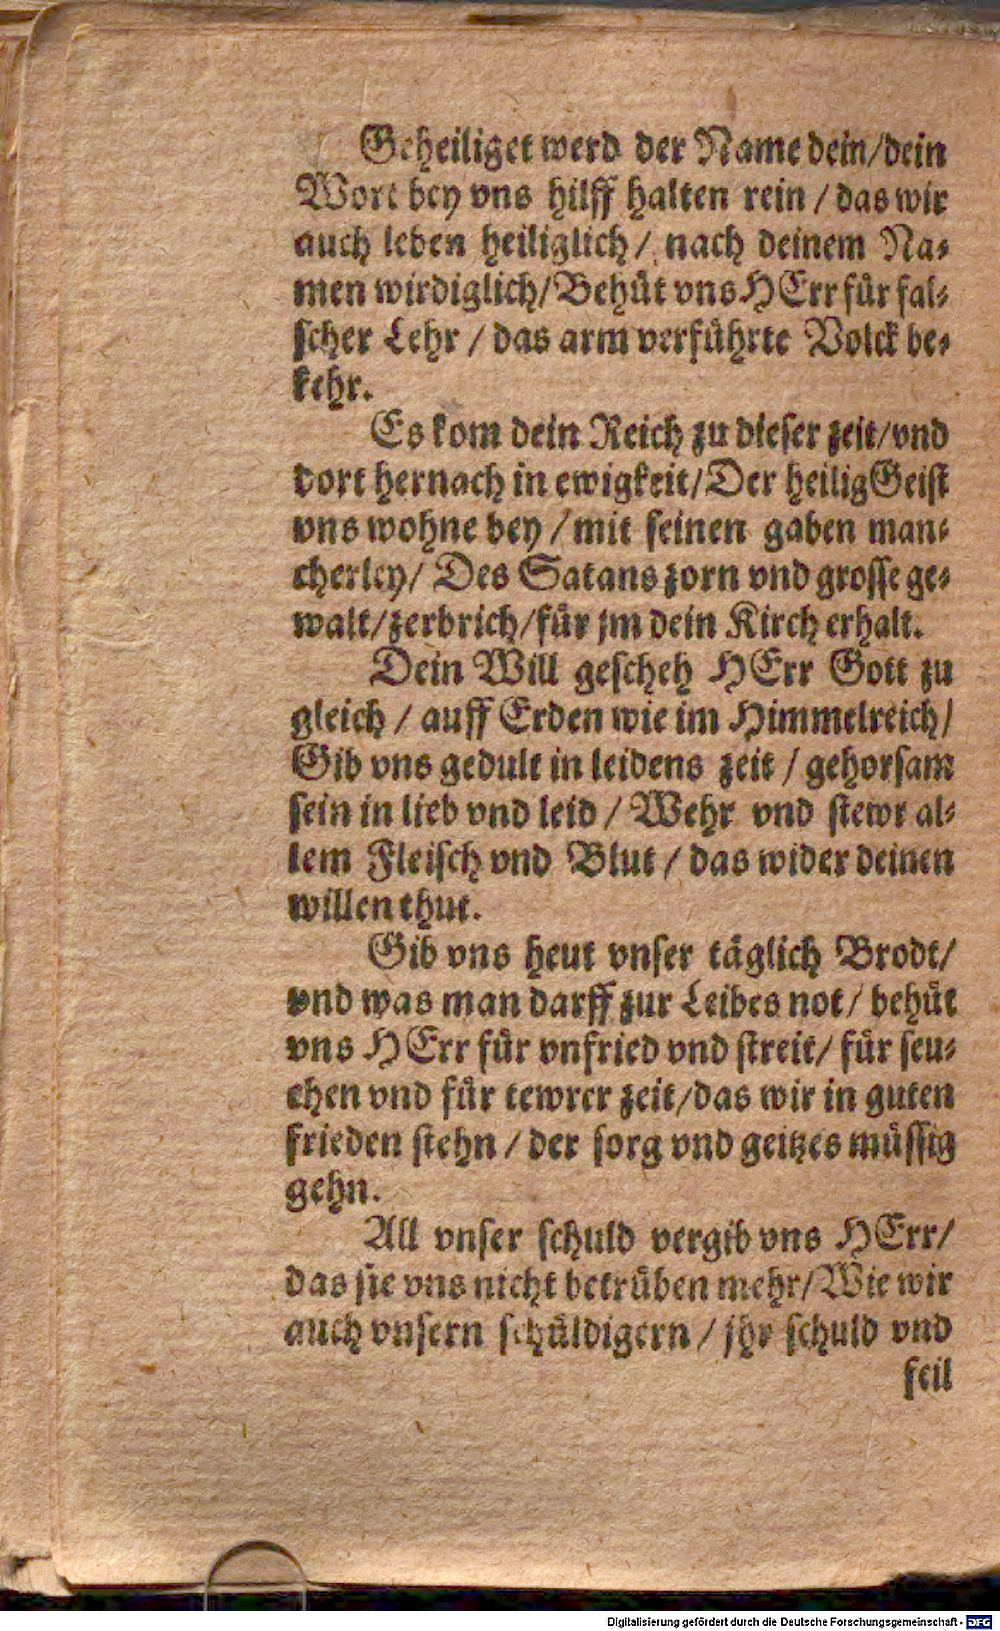 Geheiliget werd der Name dein/dein
Wort bey vns hilff halten rein / das wir
auch leben heiliglich/ nach deinem Na-
men wirdiglich/Behüt vns HErr für fal-
scher Lehr / das arm verführte Volck be-
kehr.
Es kom dein Reich zu dieser zeit/vnd
dort hernach in ewigkeit/Der heilig Geist
vns wohne bey / mit seinen gaben man-
cherley/ Des Satans zorn vnd grosse ge-
walt/zerbrich/für jm dein Kirch erhalt.
Dein Will gescheh HErr Gott zu
gleich / auff Erden wie im Himmelreich/
Gib vns gedult in leidens zeit / gehorsam
sein in lieb vnd leid / Wehr vnd stewr al-
lem Fleisch vnd Blut / das wider deinen
willen thut.
Gib vns heut vnser täglich Brodt/
vnd was man darff zur Leibes not/ behüt
vns HErr für vnfried vnd streit/ für seu-
chen vnd für tewrer zeit/das wir in guten
frieden stehn / der sorg vnd geitzes müssig
gehn.
All vnser schuld vergib vns HErr/
das sie vns nicht betrüben mehr/Wie wir
auch vnsern schüldigern / jhr schuld vnd
feil
Digitalisierung gefördert durch die Deutsche Forschungsgemeinschaft - DFG